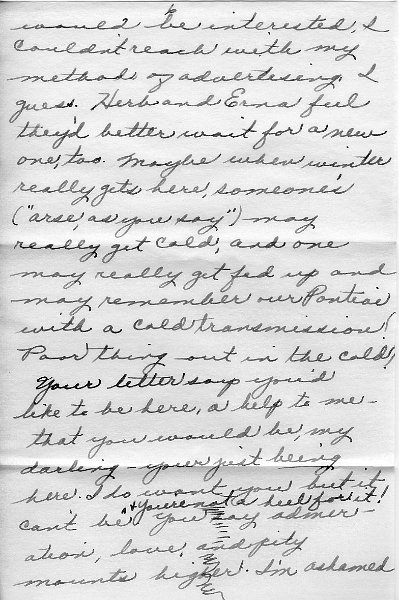 would be interested, I
couldn't reach with my
methods of advertising, I
guess. Herb and Erna feel
they'd better wait for a new
one, too. Maybe when winter
really gets here, someone's
("arse, as you say") may
really get cold, and one
may really get fed up and
may remember our Pontiac
with a cold transmission!
Poor thing out in the cold!
Your letter says you'd
like to be here, a help to me -
that you would be, my
darling - your just being
here. I do want you but it
can't be & you're not a heel for it!
You say admir-
ation, love, and pity
mounts higher. I'm ashamed